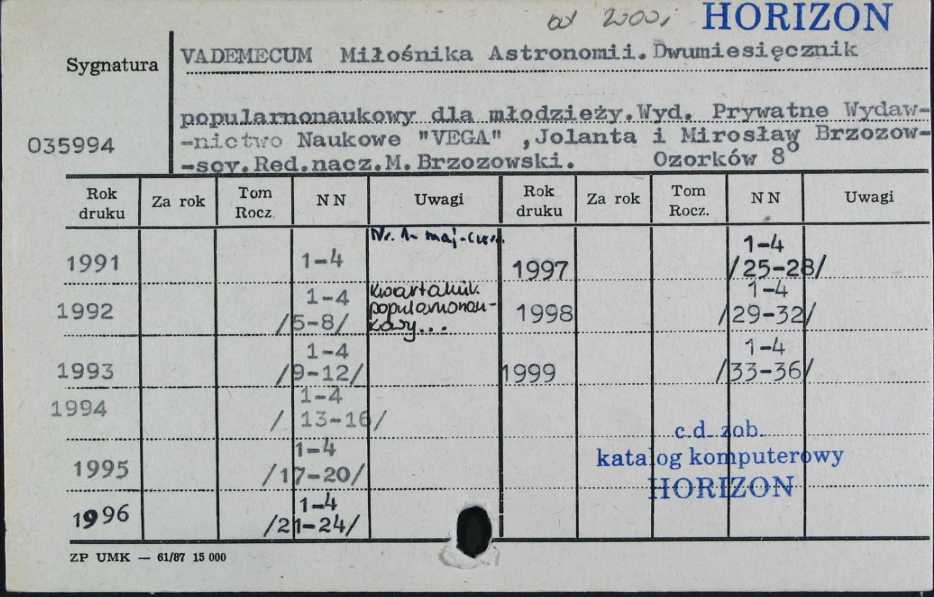 od 2000, HORIZON
Sygnatura
VADEMECUM Miłośnika Astronomii. Dwumiesięcznik
popularnonaukowy dla młodzieży. Wyd. Prywatne Wydaw-
035994
-nictwo Naukowe "VEGA" ,Jolanta i Mirosław Brzozow-
-scy. Red.nacz. M. Brzozowski. Ozorków 8°
Rok druku Za rok Tom Rocz. NN Uwagi Rok druku Za rok Tom Rocz. NN Uwagi
1991 1-4 Nr. 1- maj-czerw. 1997 1-4 /25-28/
1992 1-4 /5-8/ kwartalnik popularnonaukowy... 1998 1-4 /29-32/
1993 1-4 /9-12/ 1999 1-4 /33-36/
1994 1-4 / 13-16/
1995 1-4 /17-20/
1996 1-4 /21-24/
c.d. zob.
katalog komputerowy
HORIZON
ZP UMK — 61/87 15 000